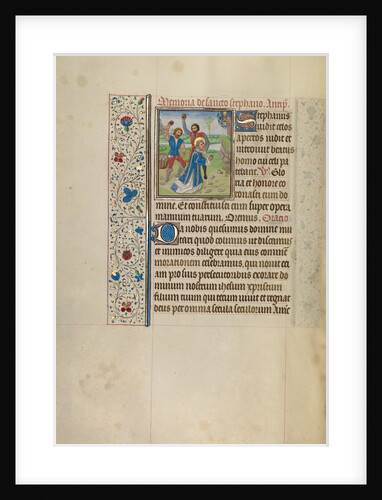 Memoria de sancto stephano. Antiph
Stephanus
vidit celos
apertos vidit et
introivit beatus
homo cui celi pa
tebant. V. Glo
ria et honore co
ronasti eum do
mine. Et constituisti eum super opera
manuum tuarum. Oremus. Oratio
Da nobis quesumus domine imi
tari quod colimus ut discamus
et inimicos diligere quia eius comme
morationem celebramus, qui novit eti
am pro suis persecutoribus exorare do
minum nostrum ihesum xpristum
filium tuum qui tecum vivit et regnat
deus per omnia secula seculorum Ame